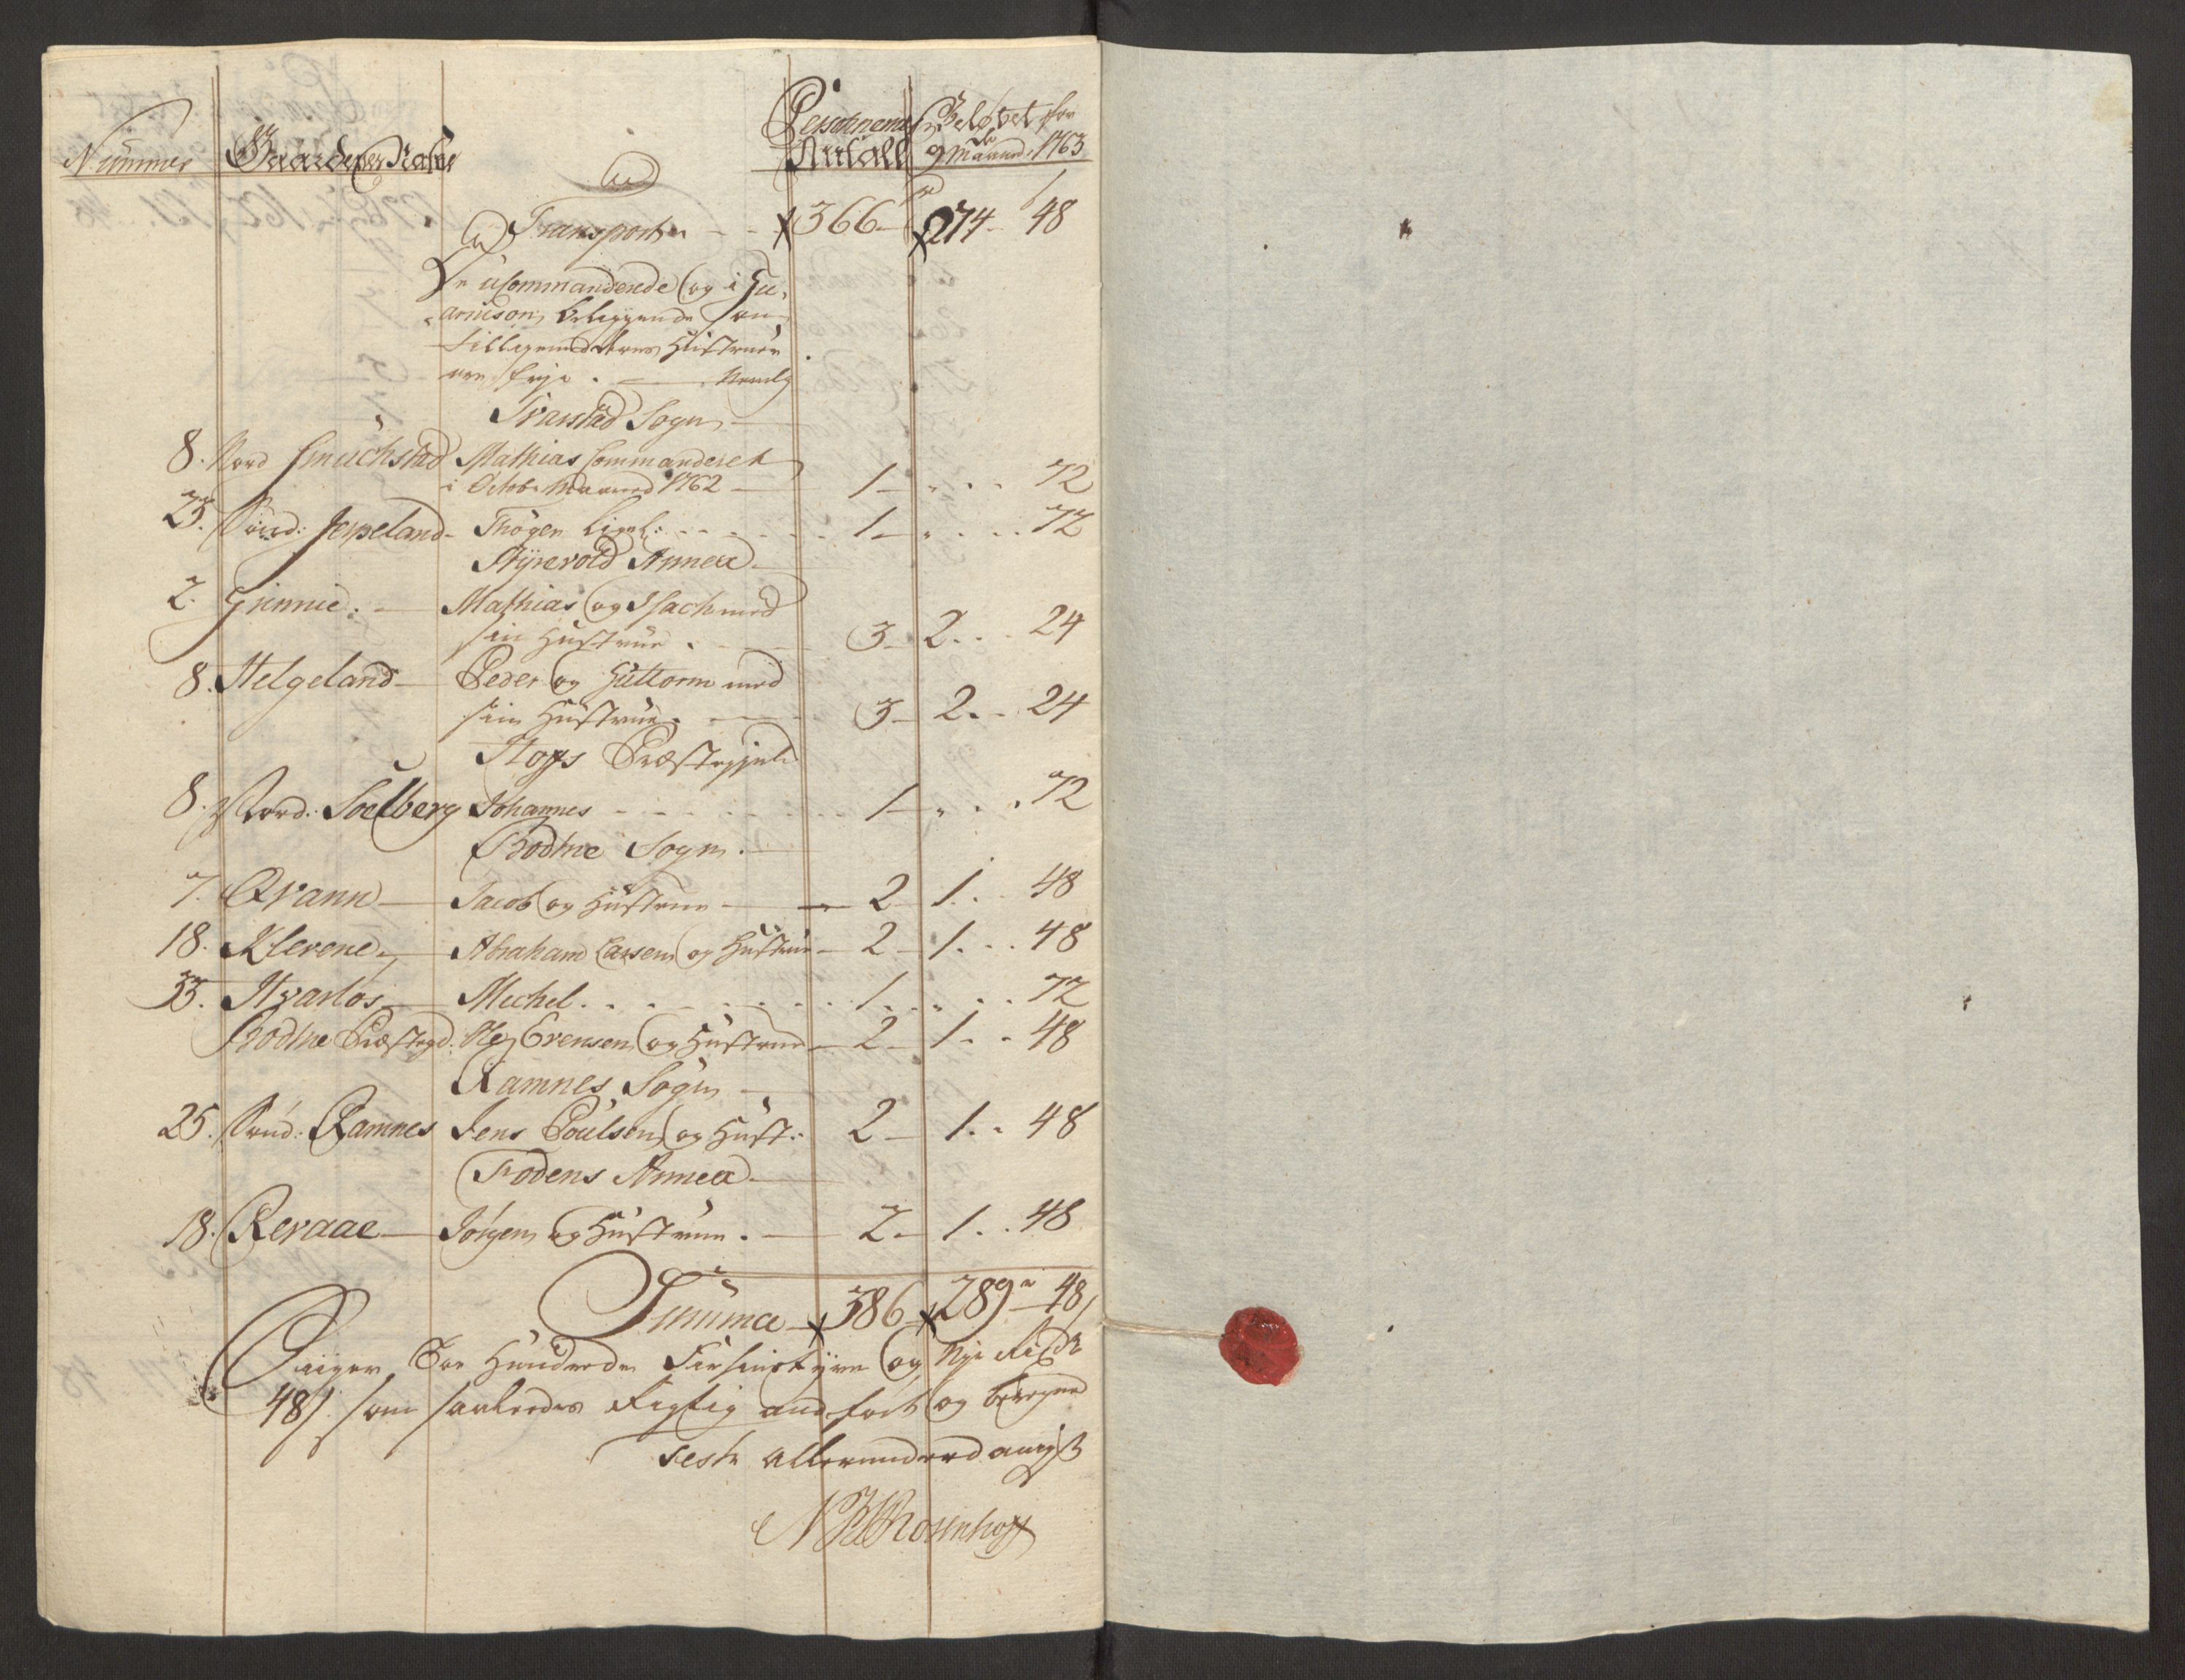 Nummer Gaardenes Nafne Persohnernes Antall Beløbet for 9 Maaned. 1763
Transport 366 274 48
De uCommanderede og i Gu-
arnison beliggende
tilligemed deres Hustruer
ere frije. Nemlig
Svarstad Sogn
8. Nord Mathias Commanderet
i Octobr Maaned 1762 1 72
23. Sönd: Jerpeland Thøgen Ligel: 1 72
Styrvold Annex
2. Grinnie Mathias og Isach med
sin Hustrue 3 2 24
8. Helgeland Peder og Guttorm med
sin Hustrue 3 2 24
Hoffs Præstegield
8. Nord: Soelberg Johannes 1 72
Bodtne Sogn.
7. Qvann Jacob og Hustrue 2 1 48
18. Klevene Abraham Larsen og Hustrue 2 1 48
33. Hvarlos Michel 1 72
Bodtne Præstegd: Ole Evensen og Hustrue 2 1 48
Ramnes Sogn
25. Sønd: Ramnes Jens Poulsen og Hust: 2 1 48
Fodens Annex
18. Revaae Jörgen og Hustrue 2 1 48
Summa 386 289 48
Siiger Toe Hundrede Fiirsindstyve og Nye Rixdr
48 s. som saaledes Rigtig andført og beregnet
Teste Allerunderdanigst
Rosenhoff